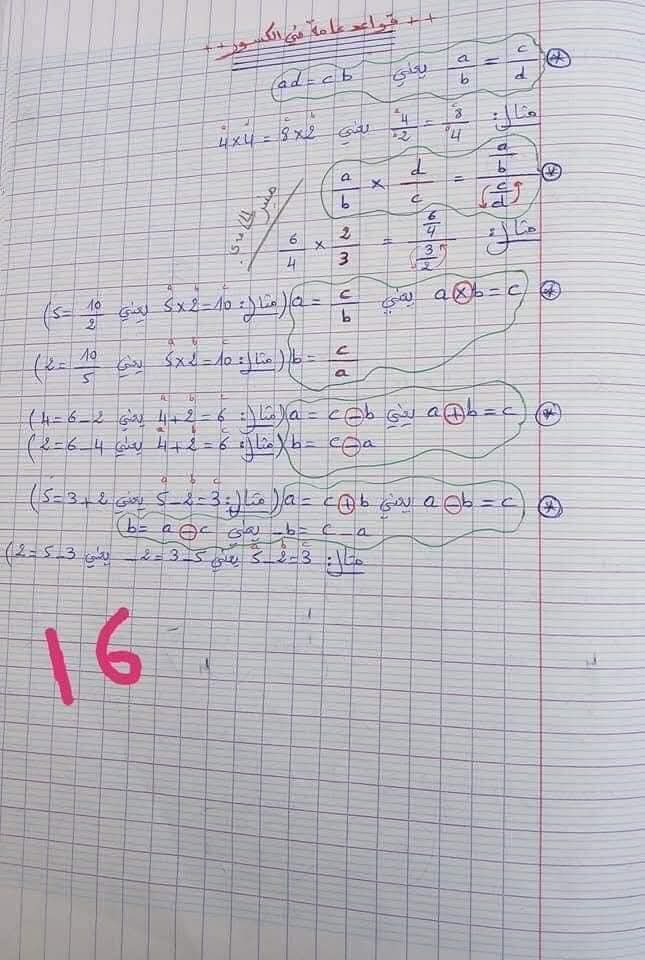 ++ قواعد عامة في الكسور ++
⊛ a/b = c/d يعني ad = cb
مثال: 8/4 = 4/2 يعني 4×4 = 8×2
⊛ (a/b)/(c/d) = a/b × d/c
مثال: (6/4)/(3/2) = 6/4 × 2/3
⊛ a×b=c يعني a = c/b (مثال: 5×2=10 يعني 5=10/2)
b = c/a (مثال: 5×2=10 يعني 2=10/5)
⊛ a+b=c يعني a = c-b (مثال: 4+2=6 يعني 4=6-2)
b = c-a (مثال: 4+2=6 يعني 2=6-4)
⊛ a-b=c يعني a = c+b (مثال: 5-2=3 يعني 5=3+2)
-b = c-a يعني b = a-c
مثال: 5-2=3 يعني -2=3-5 يعني 2=5-3)
16